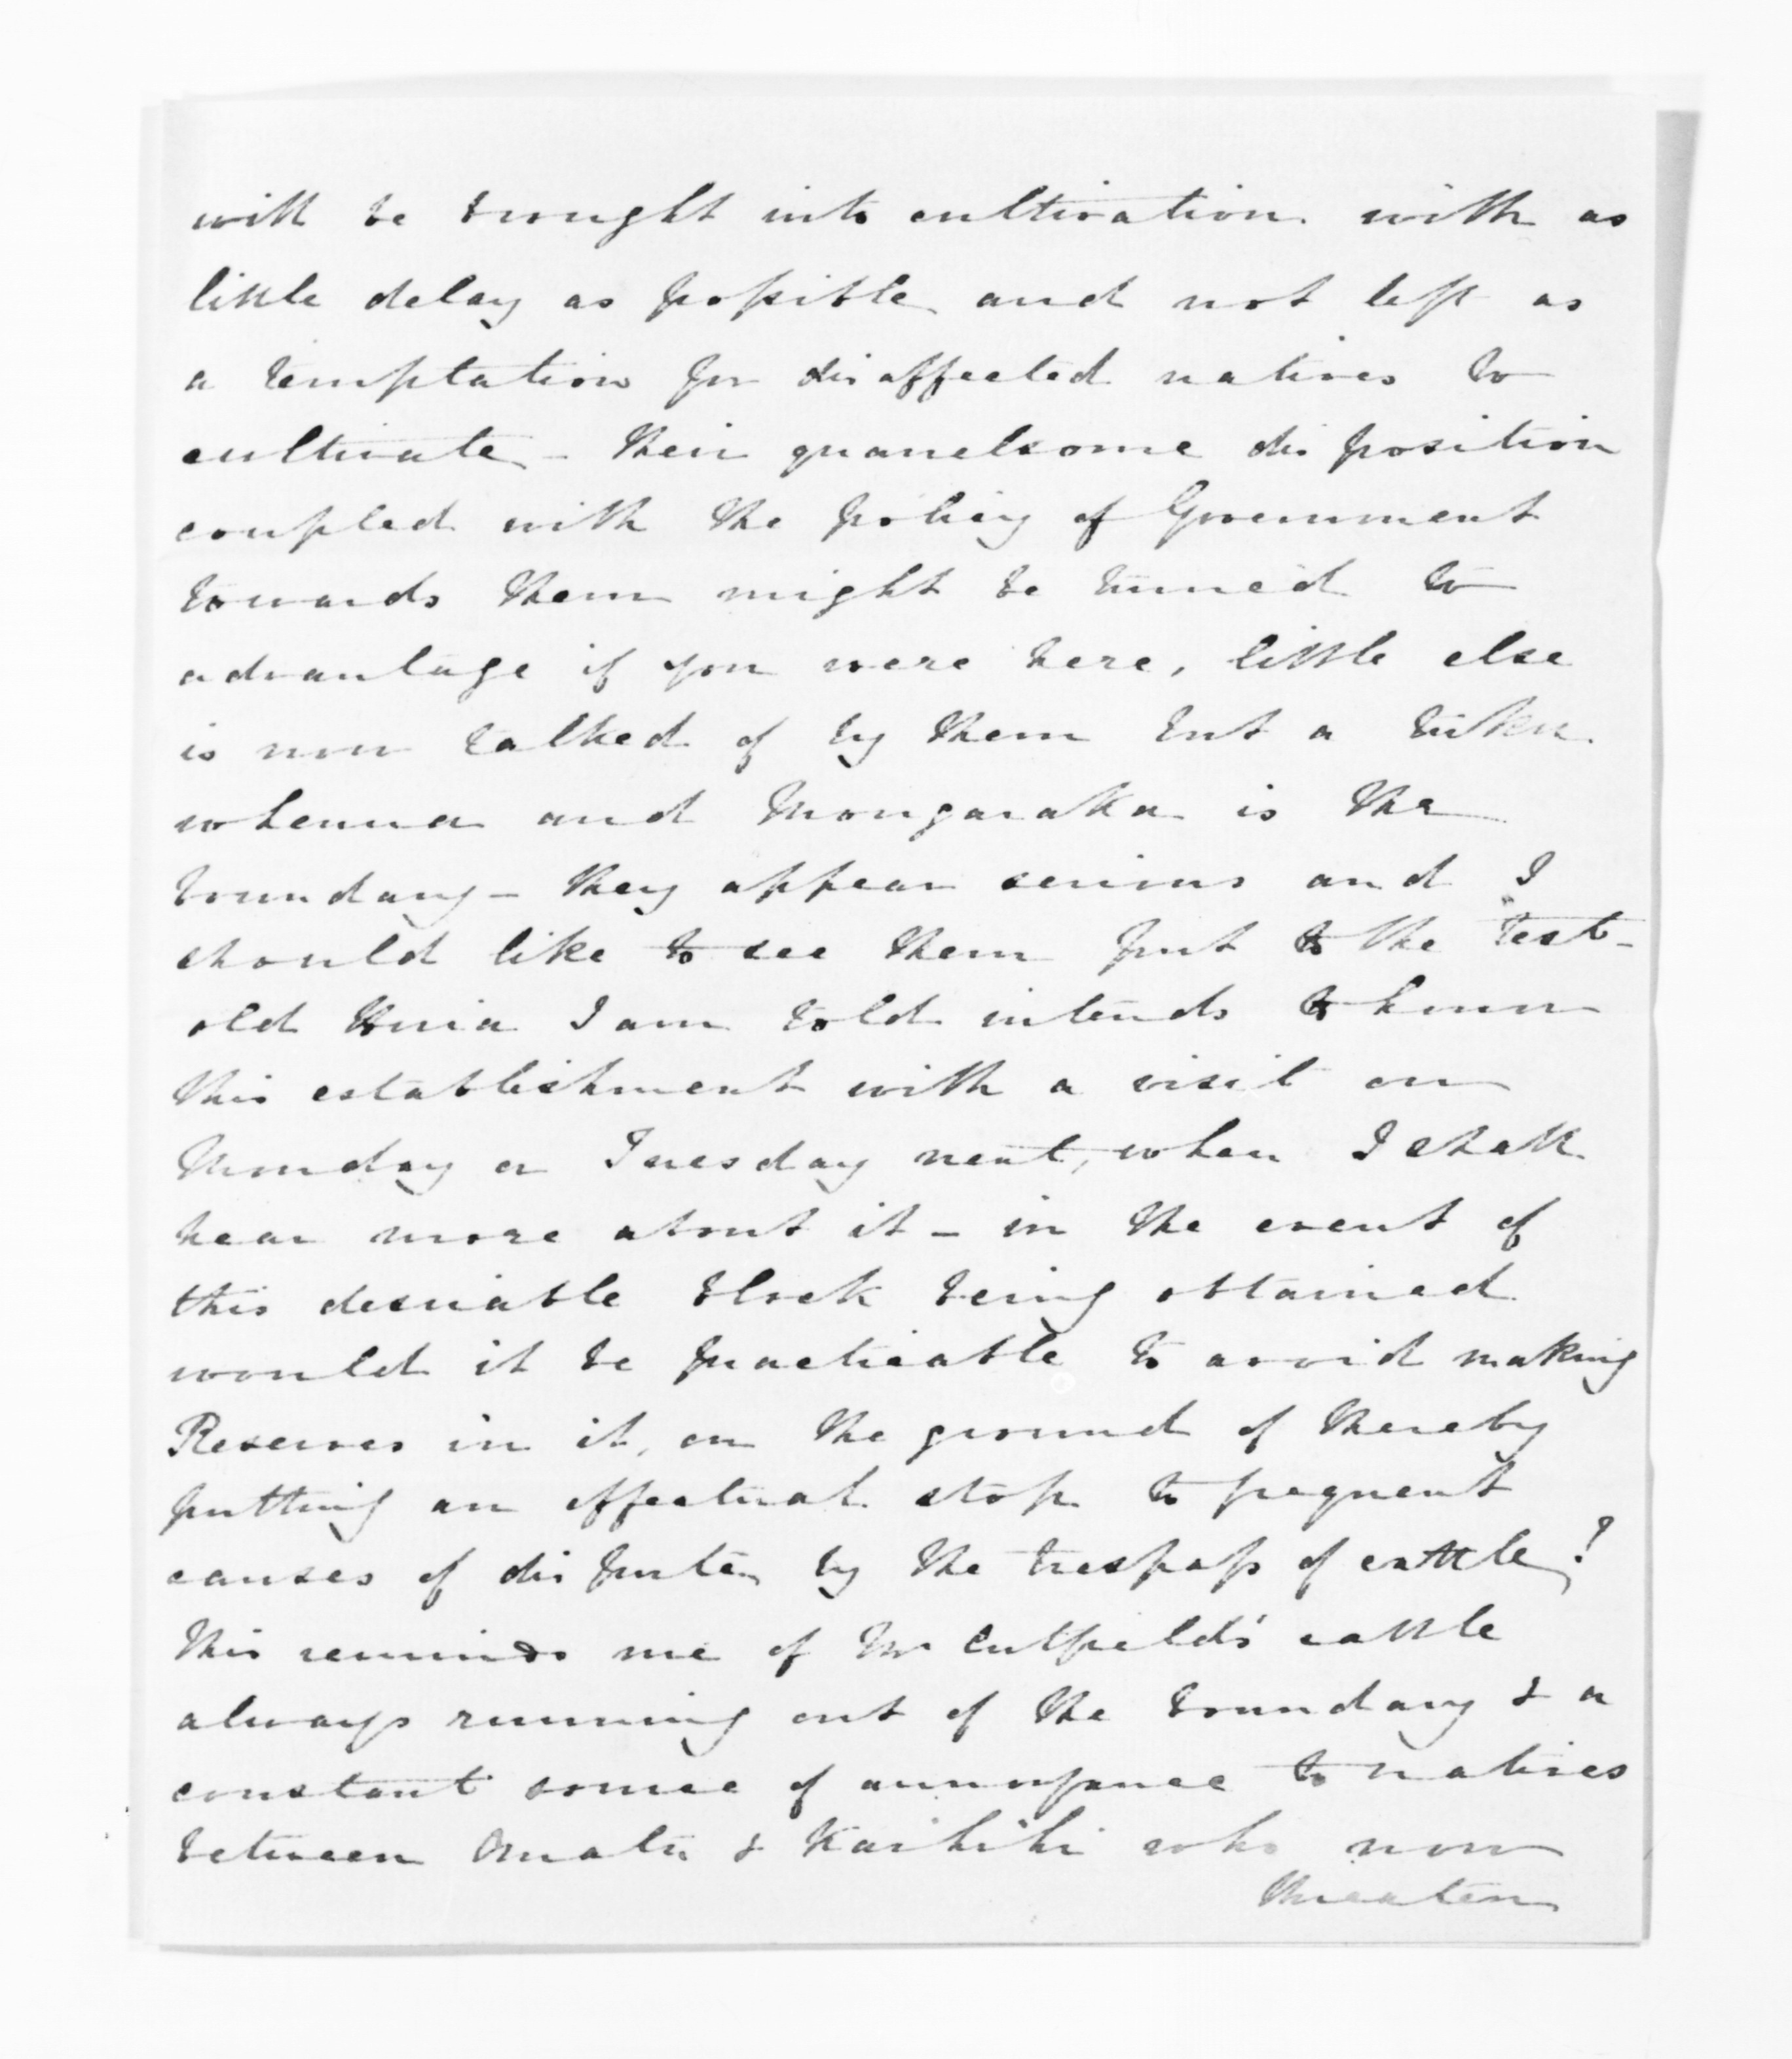 will be brought into cultivation with as
little delay as possible and not left as
a temptation for disaffected natives to
cultivate - their quarrelsome disposition
coupled with the policy of Government
towards them might be turned to
advantage if you were here, little else
is now talked of by them but a tuku
whenua and Mongaraka is the
boundary - they appear serious and I
should like to see them put to the test -
old I am told intends to honor
this establishment with a visit on
Monday or Tuesday next, when I shall
hear more about it - in the event of
this desirable block being obtained
would it be practicable to avoid making
Reserves in it, on the ground of thereby
putting an effectual stop to frequent
causes of dispute, by the trespass of cattle?
This reminds me of Mr Cutfield's cattle
always running out of the boundary & a
constant source of annoyance to natives
between Omata & Kaihihi who now
threaten